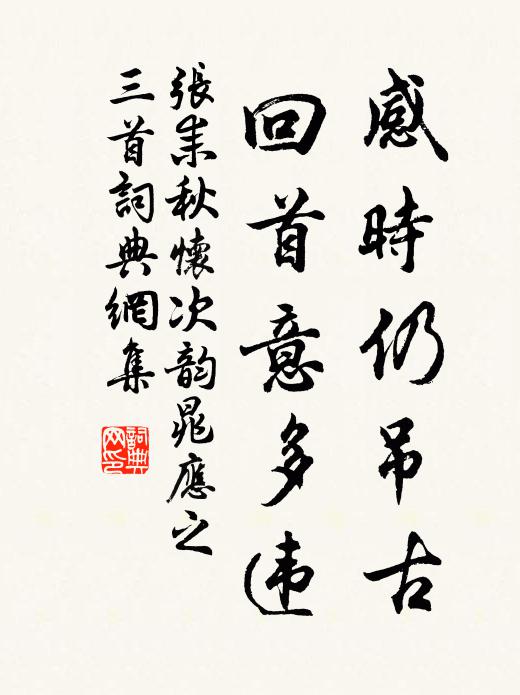 感時仍吊古
回首意多违
張耒秋懷次韵晁應之
三首詞典網集
詞典网印